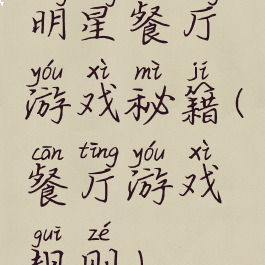 明星餐厅
yóu xì mì jí
游戏秘籍(
cān tīng yóu xì
餐厅游戏
guī zé
规则)